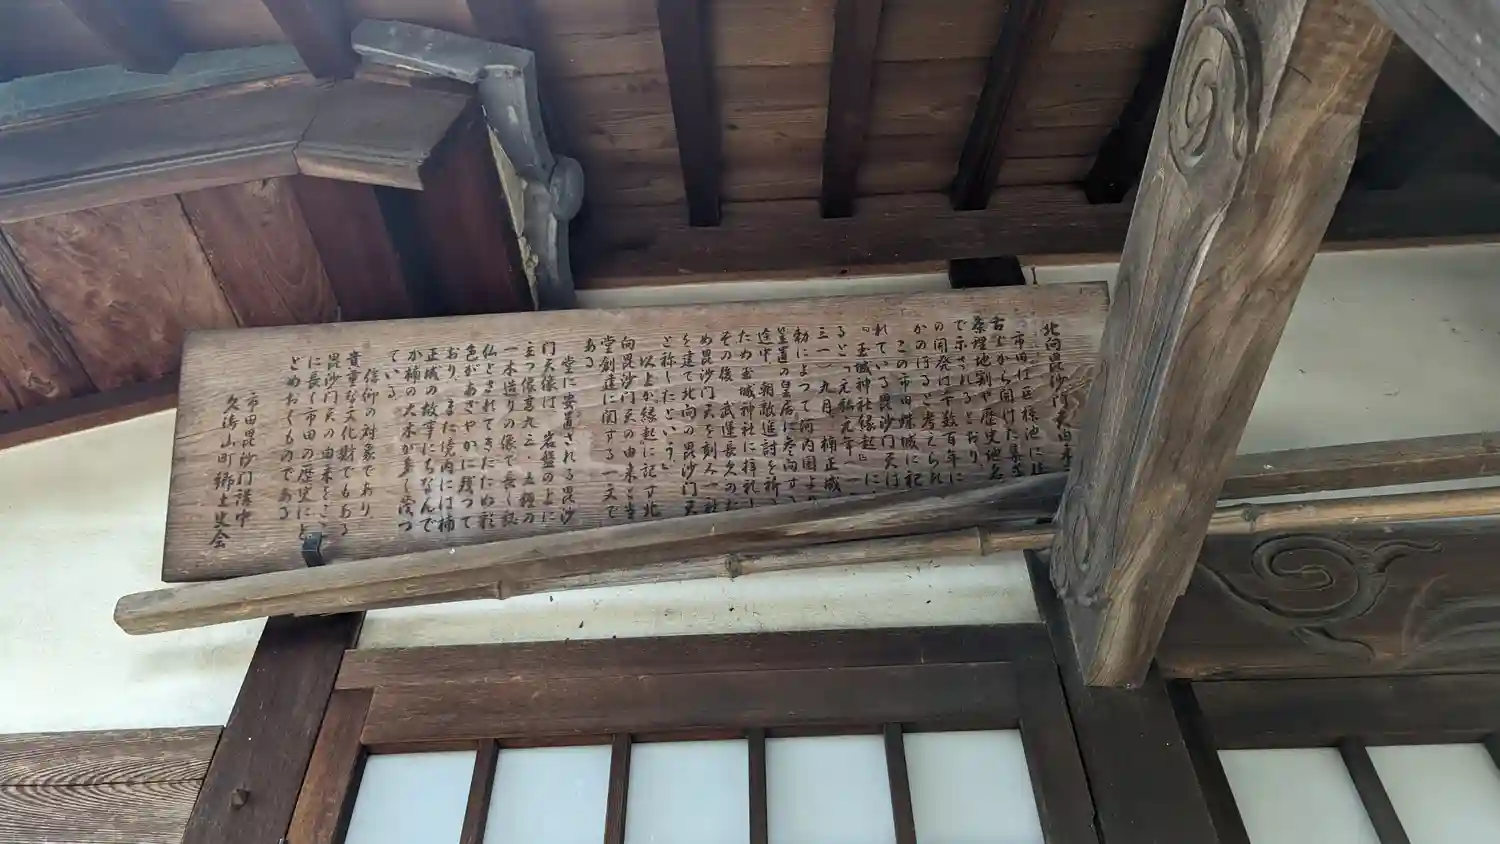 北向毘沙門天由来
市田は巨椋池に
古くから開けた集
条理地割や歴史地名
で示されるとおり、
の開発は千数百年に
かのぼると考えられ
この市田珠城に祀
れている毘沙門天は
『玉城神社縁起』に
ると、元弘元年(一
三一)九月、楠正成
勅によって河内国より
笠置の皇居に参向す
途中、朝敵進討を祈
ため玉城神社に拝礼し
その後、武運長久のた
め毘沙門天を刻み一社
を建て北向の毘沙門天
と称したという』
以上が縁起に記す北
向毘沙門天の由来と当
堂創建に関する一文で
ある
堂に安置される毘沙
門天像は、岩盤の上に
立つ像高九三・五糎の
一木造りの像で長く秘
仏とされてきたため彩
色があざやかに残って
おり、また境内には楠
正成の故事にちなんで
か楠の大木が多く茂っ
ている
信仰の対象であり、
貴重な文化財でもある
毘沙門天の由来をここ
に長く市田の歴史にと
どめおくものである
市田毘沙門講中
久御山町郷土史会